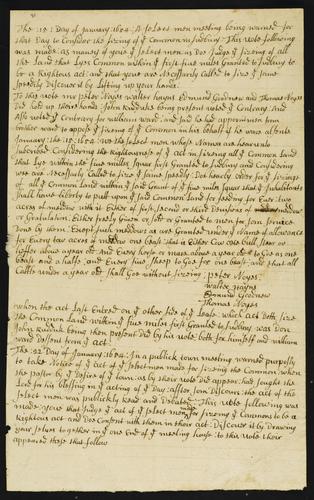 The :18: Day of January: 1654: A select men meeting being warned for
that Day to Consider the sizing of y Common in Sudbury: This vote following
was made: as maney of you y select men as Doe Judge y sizing of all
the Land that Lyes Common within y first five miles Granted to Sudbury to be
a Righteous act: and that you are Necessarily Called to size y same
speedily Discover it by Lifting up your hands:
To this vote mr peter Noyes walter hayns Edmund Goodnow and Thomas Noyes
Did hold up their hands John Ruddick being present voted y Contrary: And
Also voted y Contrary for william ward: and said he had appointment from
brother ward to oppose y sizing of y Common in his behalf if he was absent
January: the :18: 1654: We the select men whose Names are hereunto
subscribed Considering the righteousness of y act in sizing all y Common land
That Lye within the five miles square first Granted to Sudbury and Considering
wee are Necessarily Called to size y same speedily: Doe hearby order for y sizings
of all y Common Land within y said Grant of y five miles square that y Inhabitants
shall have liberty to putt upon y said Common Land for feeding for Ever: two
acres of meadow with it Either as first second or third Devisions of meadow
or Gratulation: Either freely Given or soll or Granted to men for some service
Done by them: Except such meddows as are Granted under y Name of allowance
for Every two acres of meddow one beast: that is Either Cow oxe bull steer or
heiffer above a year old: And Every horse or mare above a year old to Goe as one
beast and a half: and Every five sheep to Goe for one beast: and that all
Calves under a year old shall Goe without sizing: peter Noyes
Walter Hayns
Edmund Goodnow
Thomas Noyes
when the act Last Entred on y other side of y Leafe: which act doth size
the Common Land within y five miles first Granted to Sudbury: was Don
John Ruddick being then present did by his vote both for himself and william
ward Dissent from y act:
The :22: Day of January: 1654: In a publick town meeting warned purposly
to take Notice of y act of y select men made for sizing the Common: when
the pastor by y Desire of y town: as by their vote did appear had sought the
Lord for his blessing in y acting of y Day: After some Discourse: the act of the
select men was publickly Read and Debated: This vote following was
made: you that Judge y act of y select men for sizing y Commons to be a
Righteous act and Doe Consent with them in their act: Discover it by drawing
your selves together in y one End of y meeting house: to this vote their
appeared those that follow